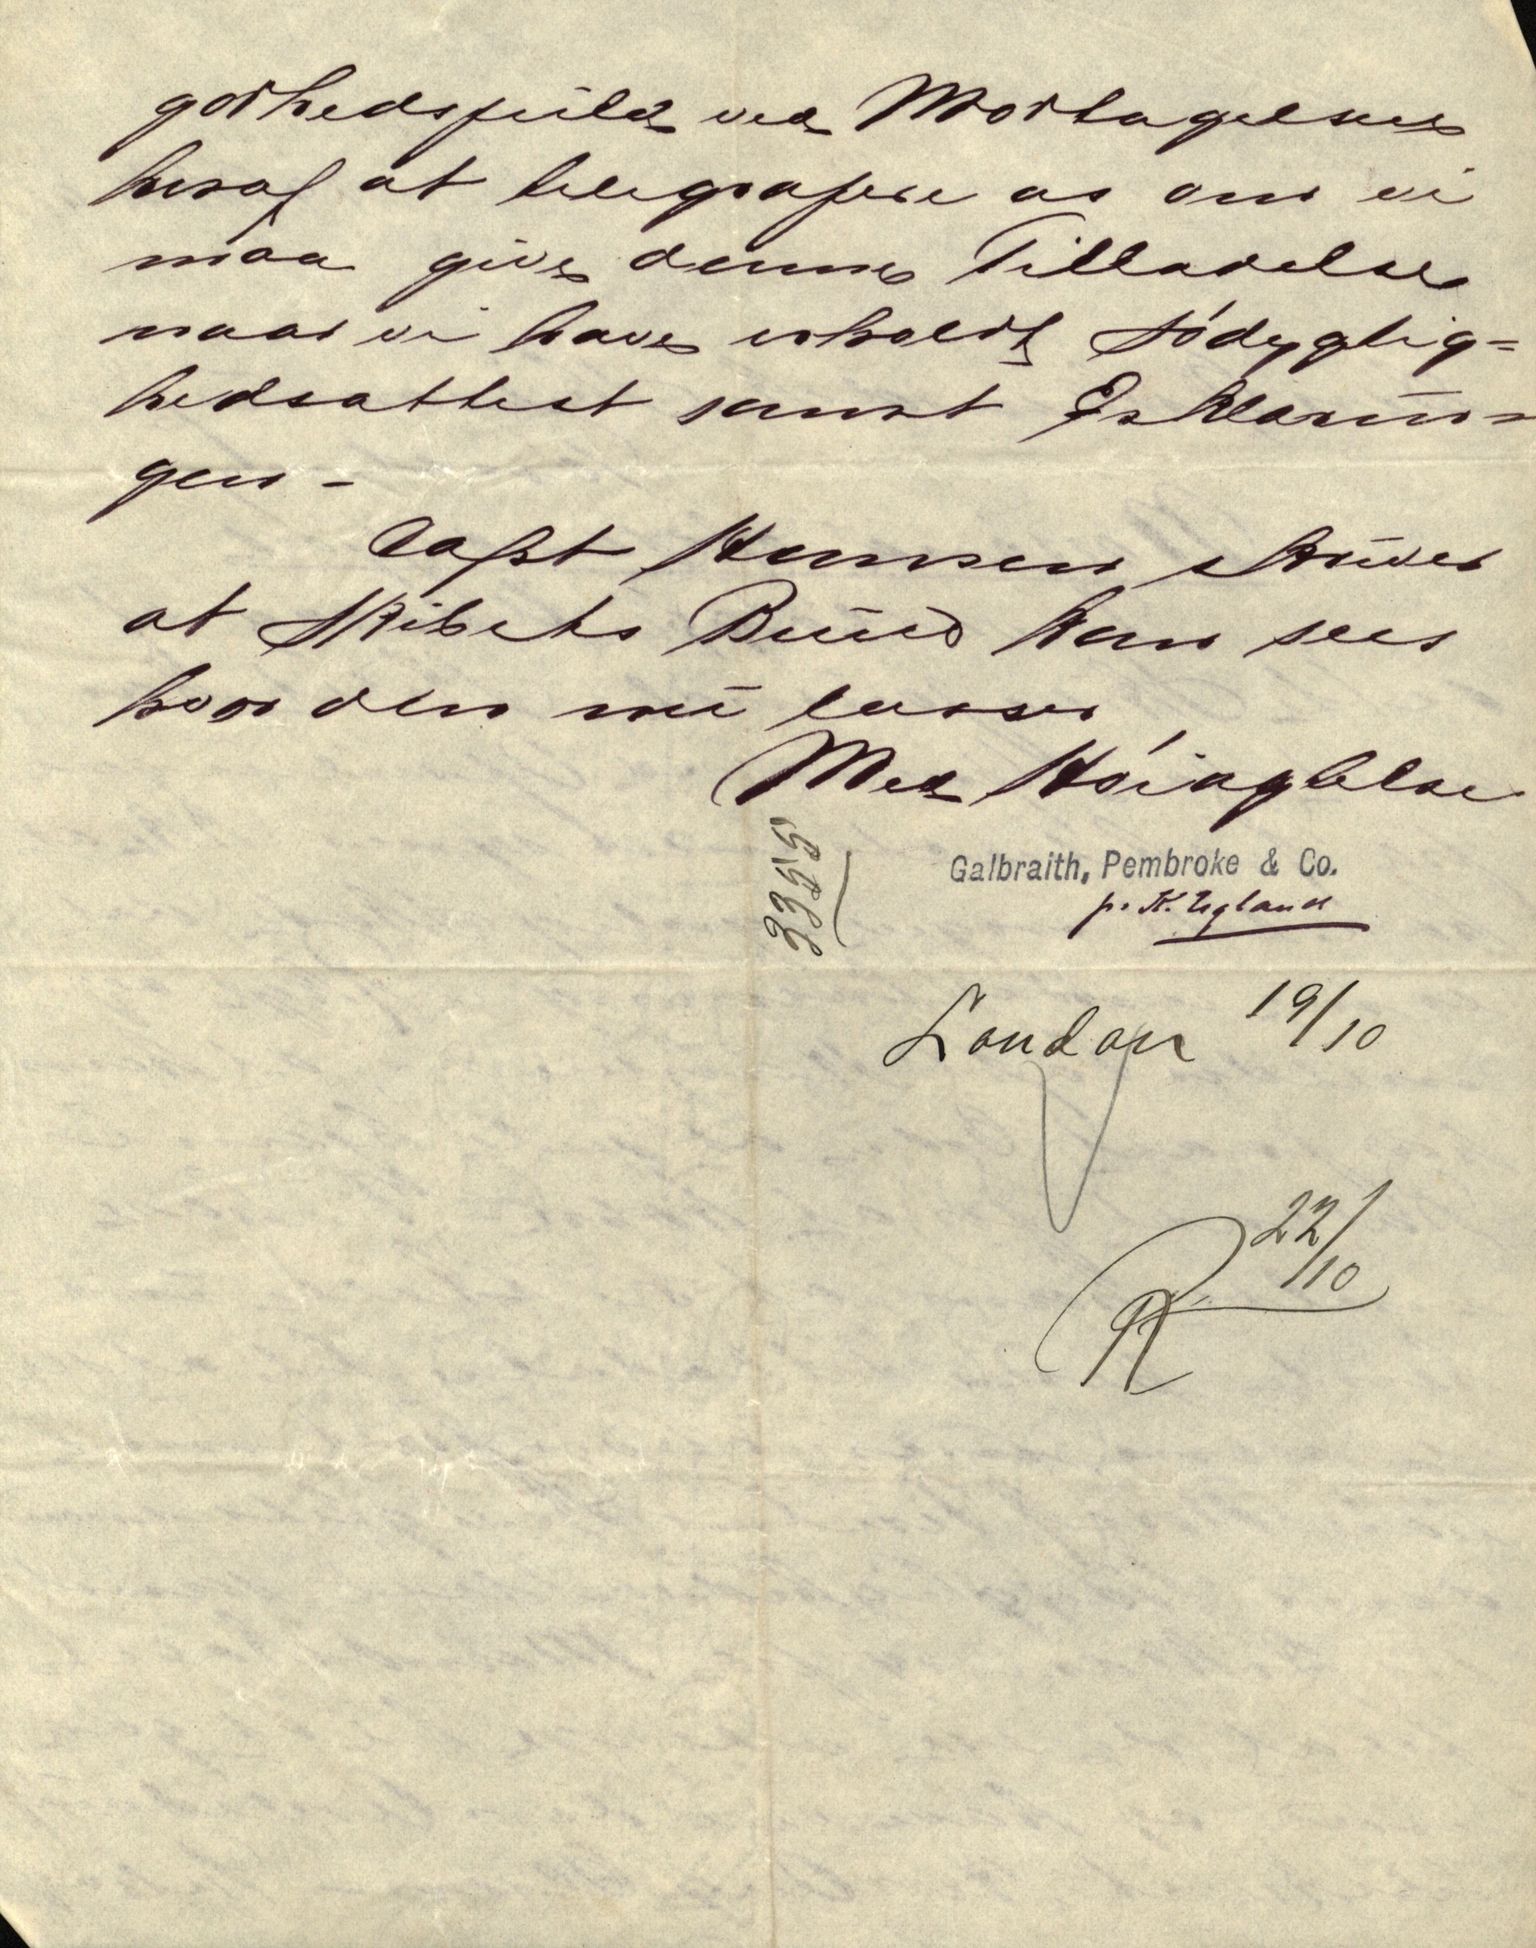 godhedsfuldt ved Modtagelsen
heraf at telegrafere os om vi
maa give denne Tilladelse
naar vi have erholdt Sødygtig=
hedsattest samt Erklærin=
gen -
Capt Hansen skriver
at Skibets Bund kan sees
hvor den nu
Med Høiagtelse
Galbraith, Pembroke & Co.
p. K. Ugland
3355
London 19/10
22/10